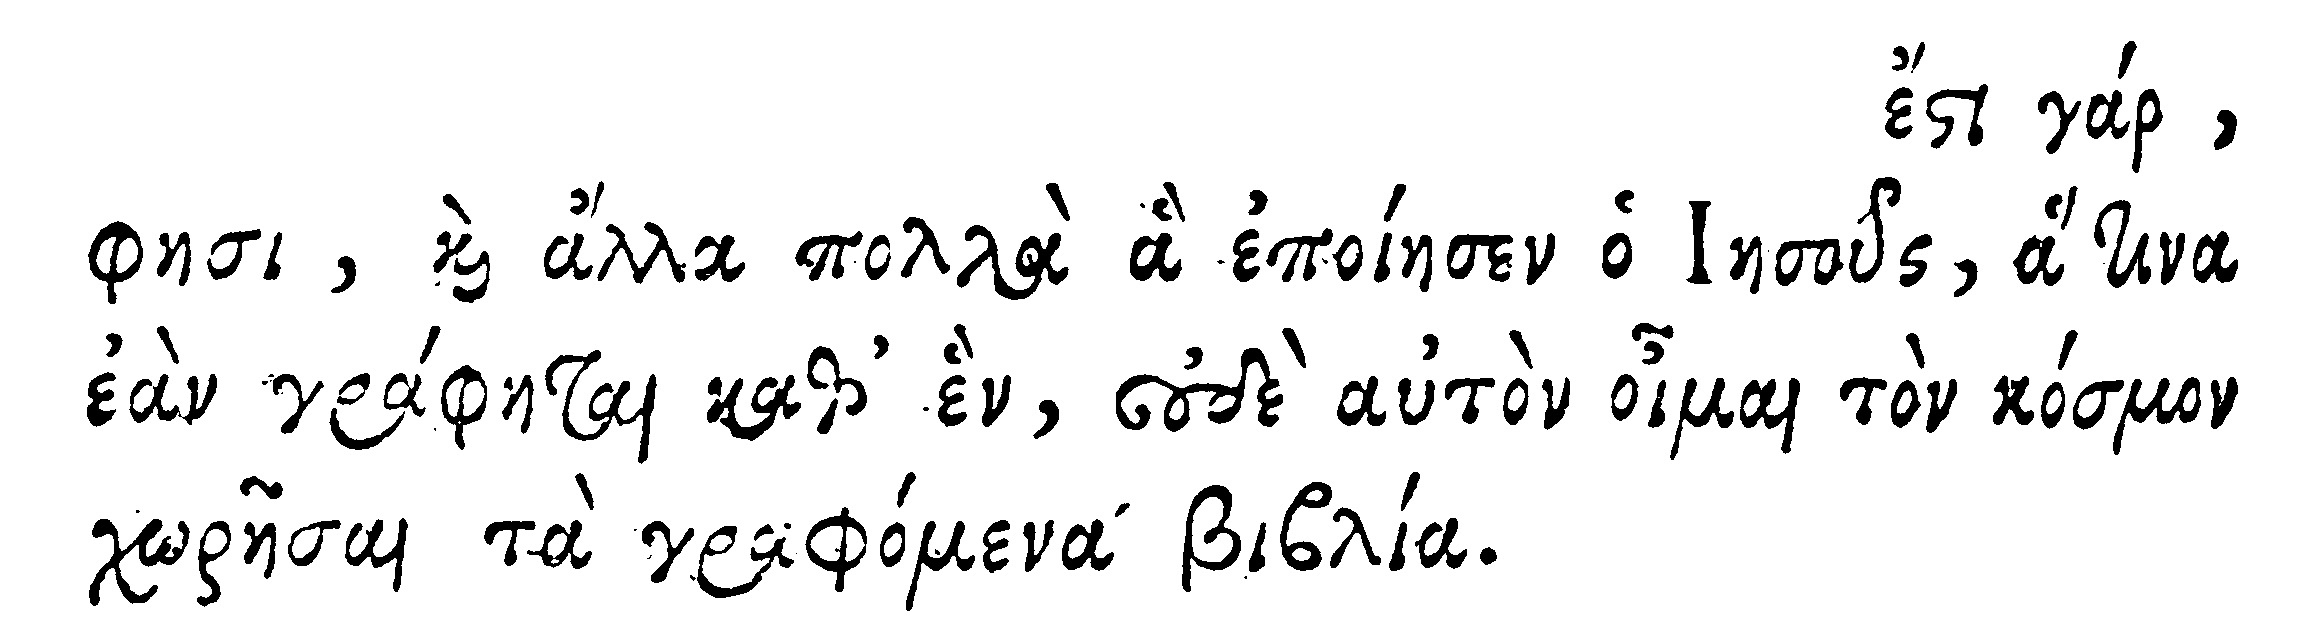 ἔστι γάρ,
φησι, καὶ ἄλλα πολλὰ ἃ ἐποίησεν ὁ Ιησοῦς, ἅ τινα
ἐὰν γράφηται καθ᾽ ἓν, οὐδὲ αὐτὸν οἶμαι τὸν κόσμον
χωρῆσαι τὰ γραφόμενα βιβλία.